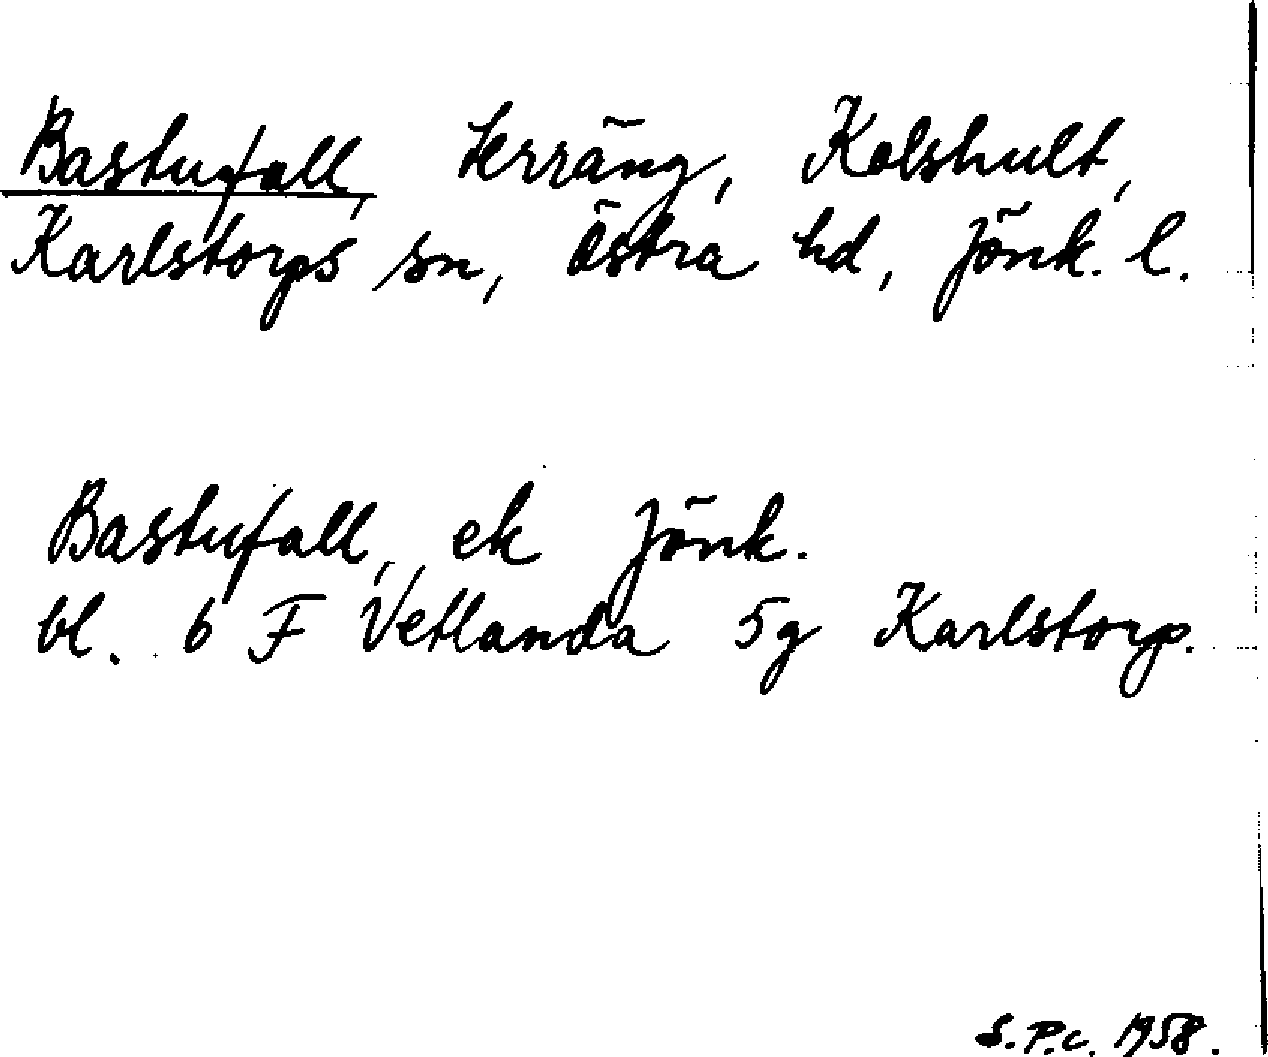 Bastufall, terräng, Kolshult,
Karlstorps sn, Östra hd, Jönk. l.
Bastufall, ek Jönk.
bl. 6 F Vetlanda 5g Karlstorp.
S.P.C. 1958.